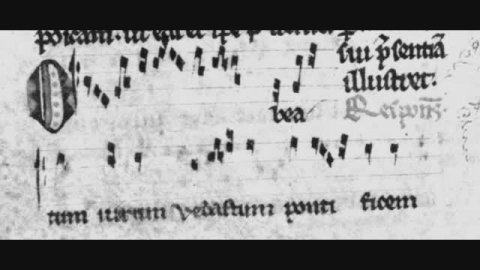 sui p̄sentiā
illustret.
O bea
Respons̄
tum uirum vedastum ponti ficem